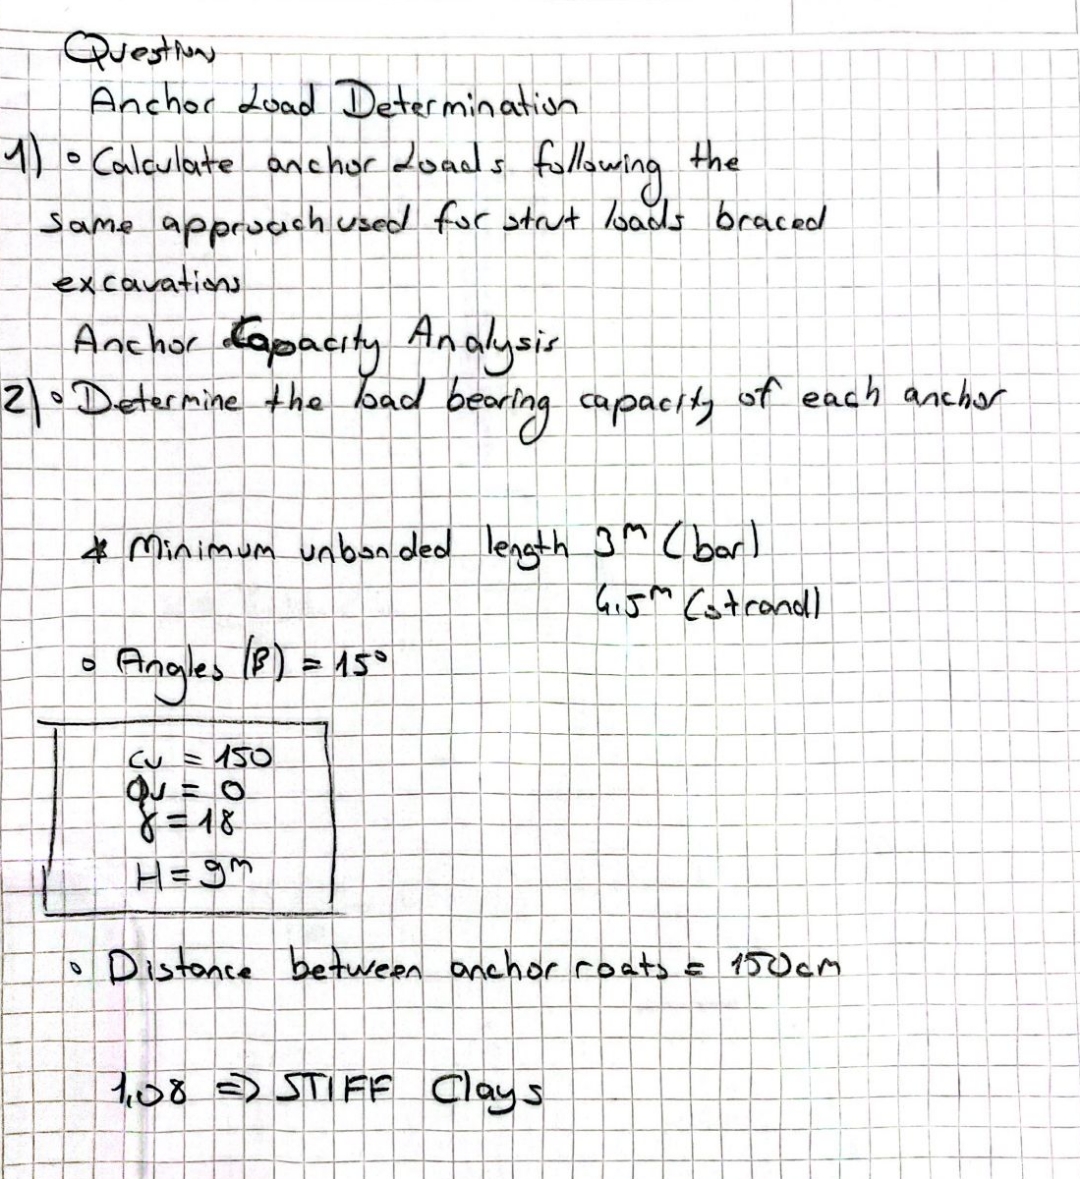 Question
Anchor Load Determination
1) • Calculate anchor Loads following the
same approach used for strut loads braced
excavations
Anchor Capacity Analysis
2) • Determine the load bearing capacity of each anchor
* Minimum unbonded length 3m (bar)
4.5m (strand)
• Angles (β) = 15°
cu = 150
Qu = 0
γ = 18
H = 9m
• Distance between anchor roats = 150cm
1,08 => STIFF Clays